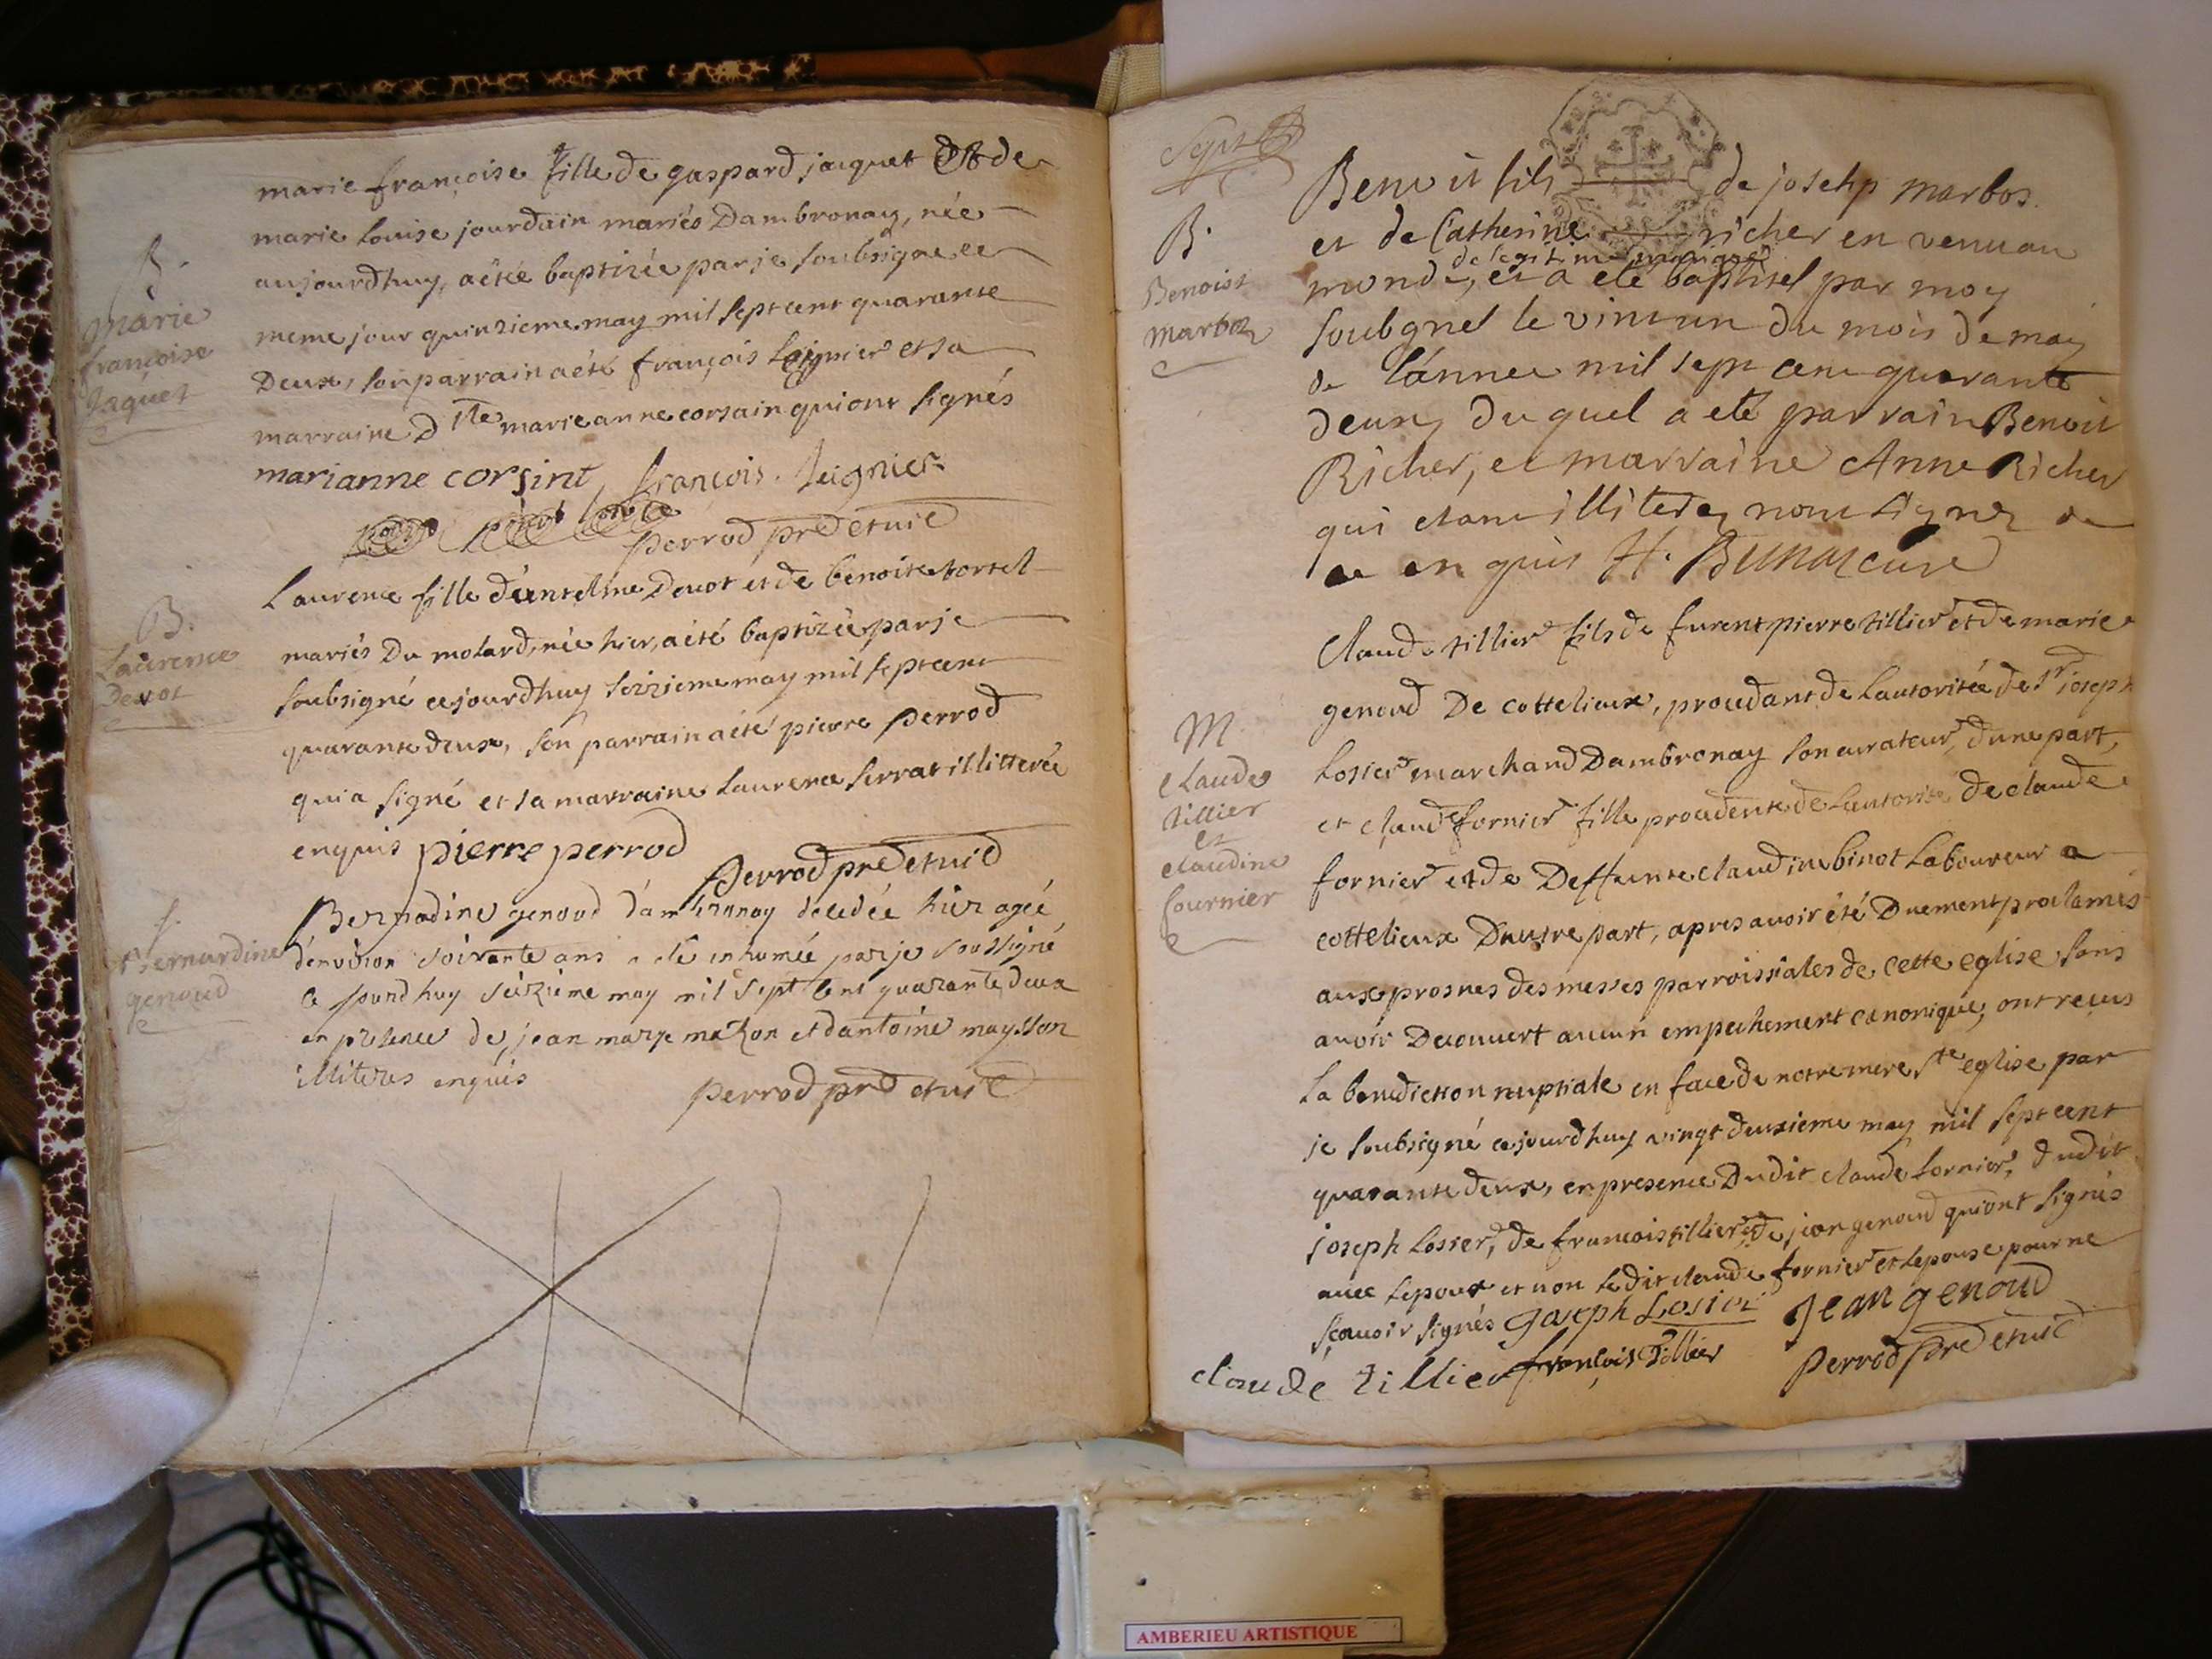 B.
marie
françoise
Jaquet
marie françoise fille de gaspard jaquet et de
marie louise jourdain mariés Dambronay, née
aujourdhuy, aétée baptizée par je soubsigné ce
meme jour quinzieme may mil sept cent quarante
Deux, son parrain aété françois leignier et sa
marraine Dlle marie anne corsain qui ont signés
marianne corsint françois leignier
perrod pred et vic
B.
Laurence
Devot
Laurence fille d'entelme Devot et de benoite tortel
mariés Du molard, née hier, aété baptizée par je
soubsigné cejourdhuy seizieme may mil sept cent
quarante deux, son parrain aété pierre perrod
qui a signé et sa marraine Laurence serrat illitterée
enquis pierre perrod
perrod pred et vic
S.
Bernardine
genoud
Bernadine genoud d'ambronay decedée hier agée
d'environ soixante ans a été inhumée par je soussigné
ce jourd huy seizieme may mil sept cent quarante deux
en presence de jean marie mazon et dantoine maysson
illiteres enquis
perrod pred et vic
Sept
B.
Benoist
marboz
Benoit fils de josehp marbos.
et de Catherine richer en venu au
de legitime mariage
monde, et a eté baptisel par moy
soubgnel le vint un du mois de may
de l'annee mil sept cent quarante
deux, du quel a eté parrain Benoit
Richer, et marraine Anne Richer
qui etant illiteres nont signez de
ce en quis H. cure
M.
claude
tillier
et
claudine
fournier
Claude tillier fils de furent pierre tillier et de marie
genoud De cottelieux, procedant de lautoritée de Sr joseph
Lossier marchand Dambronay son curateur, d'une part,
et claude fornier fille procedente de lautorite de claude
fornier et de Deffunte claudine binot Laboureur a
cottelieux Dautre part, apres avoir été Duement proclamés
aux prosnes des messes parroissiales de cette eglise sans
avoir Decouvert aucun empechement canonique, ont recus
La benediction nuptiale en face de notre mere Ste eglise par
je soubsigné cejourdhuy vingt deuxieme may mil sept cent
quarante deux, en presence Dudit claude fornier, dudit
joseph Losser, de francois tillier et de jean genoud qui ont signés
avec lepoux et non ledit claude fornier et lepouse pour ne
sçavoir signés joseph Losier Jean genoud
claude tillier françois Tillier perrod pred et vic
AMBERIEU ARTISTIQUE